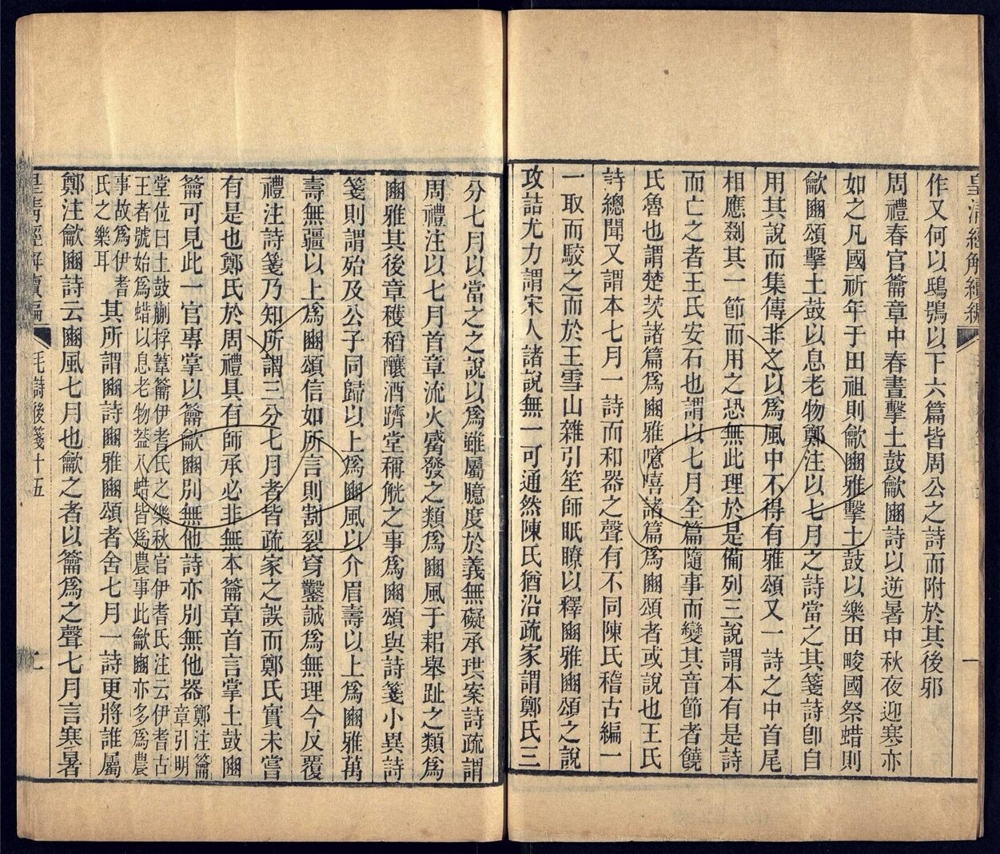 皇清經解續編
作又何以鴟鴞以下六篇皆周公之詩而附於其後邪
周禮春官籥章中春晝擊土鼓龡豳詩以逆暑中秋夜迎寒亦
如之凡國祈年于田祖則龡豳雅擊土鼓以樂田畯國祭蜡則
龡豳頌擊土鼓以息老物鄭注以七月之詩當之其箋詩卽自
用其說而集傳非之以爲風中不得有雅頌又一詩之中首尾
相應剟其一節而用之恐無此理於是備列三說謂本有是詩
而亡之者王氏安石也謂以七月全篇隨事而變其音節者饒
氏魯也謂楚茨諸篇爲豳雅噫嘻諸篇爲豳頌者或說也王氏
詩總聞又謂本七月一詩而和器之聲有不同陳氏稽古編一
一取而駮之而於王雪山雜引笙師眂瞭以釋豳雅豳頌之說
攻詰尤力謂宋人諸說無一可通然陳氏猶沿疏家謂鄭氏三
分七月以當之之說以爲雖屬臆度於義無礙承珙案詩疏謂
周禮注以七月首章流火觱發之類爲豳風于耜舉趾之類爲
豳雅其後章穫稻釀酒躋堂稱觥之事爲豳頌與詩箋小異詩
箋則謂殆及公子同歸以上爲豳風以介眉壽以上爲豳雅萬
壽無疆以上爲豳頌信如所言則割裂穿鑿誠爲無理今反覆
禮注詩箋乃知所謂三分七月者皆疏家之誤而鄭氏實未嘗
有是也鄭氏於周禮具有師承必非無本籥章首言掌土鼓豳
籥可見此一官專掌以籥龡豳別無他詩亦別無他器鄭注籥章引明
堂位曰土鼓蒯桴葦籥伊耆氏之樂秋官伊耆氏注云伊耆古
王者號始爲蜡以息老物蓋八蜡皆爲農事此龡豳亦多爲農
事故爲伊耆氏之樂耳其所謂豳詩豳雅豳頌者舍七月一詩更將誰屬
鄭注龡豳詩云豳風七月也龡之者以籥爲之聲七月言寒暑
皇清經解續編 毛詩後箋十五